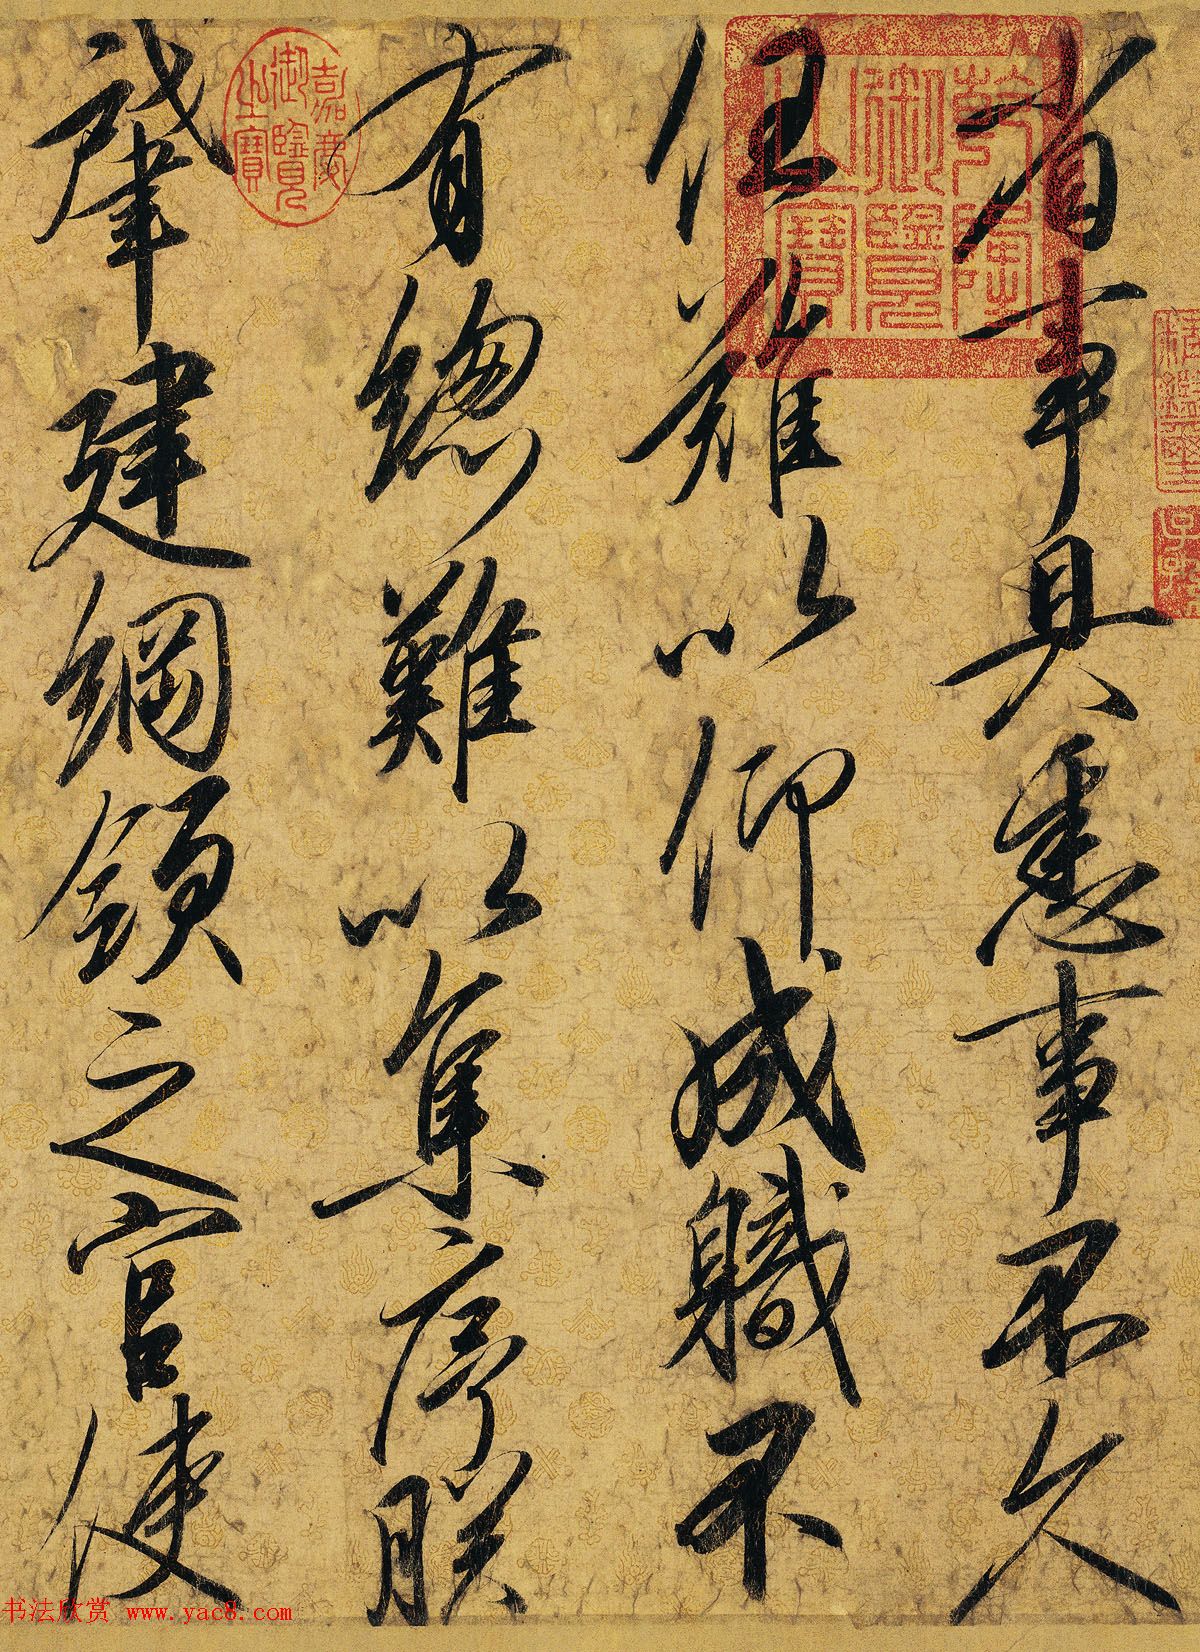 省事具悉事不久
任難以仰成職不
有總難以集序朕
肇建綱領之官使
乾隆御覽之寶
嘉慶御覽之寶
精鑑璽
书法欣赏 www.yac8.com